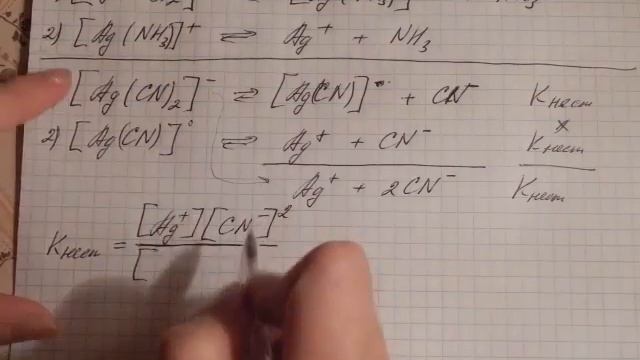 2) [Ag(NH₃)]⁺ ⇌ Ag⁺ + NH₃
[Ag(CN)₂]⁻ ⇌ [Ag(CN)]⁰ + CN⁻ Kнест
2) [Ag(CN)]⁰ ⇌ Ag⁺ + CN⁻ × Kнест
Ag⁺ + 2CN⁻ Kнест
Kнест = [Ag⁺][CN⁻]²
[